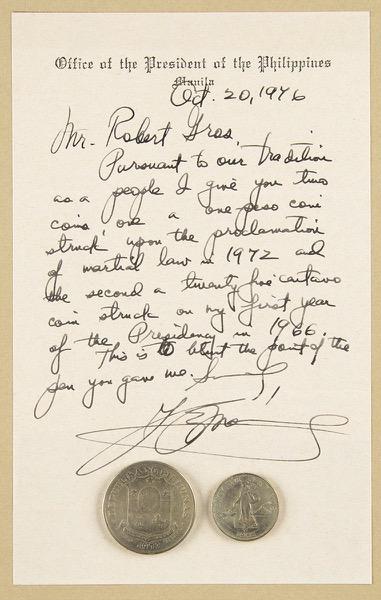 Office of the President of the Philippines
Manila
Oct. 20, 1976
Mr. Robert Gros,
Pursuant to our tradition
as a people I give you two
coins, one a one peso coin
struck upon the proclamation
of martial law in 1972 and
the second a twenty five centavo
coin struck on my first year
of the Presidency in 1966.
This is to blunt the point of the
pen you gave me.